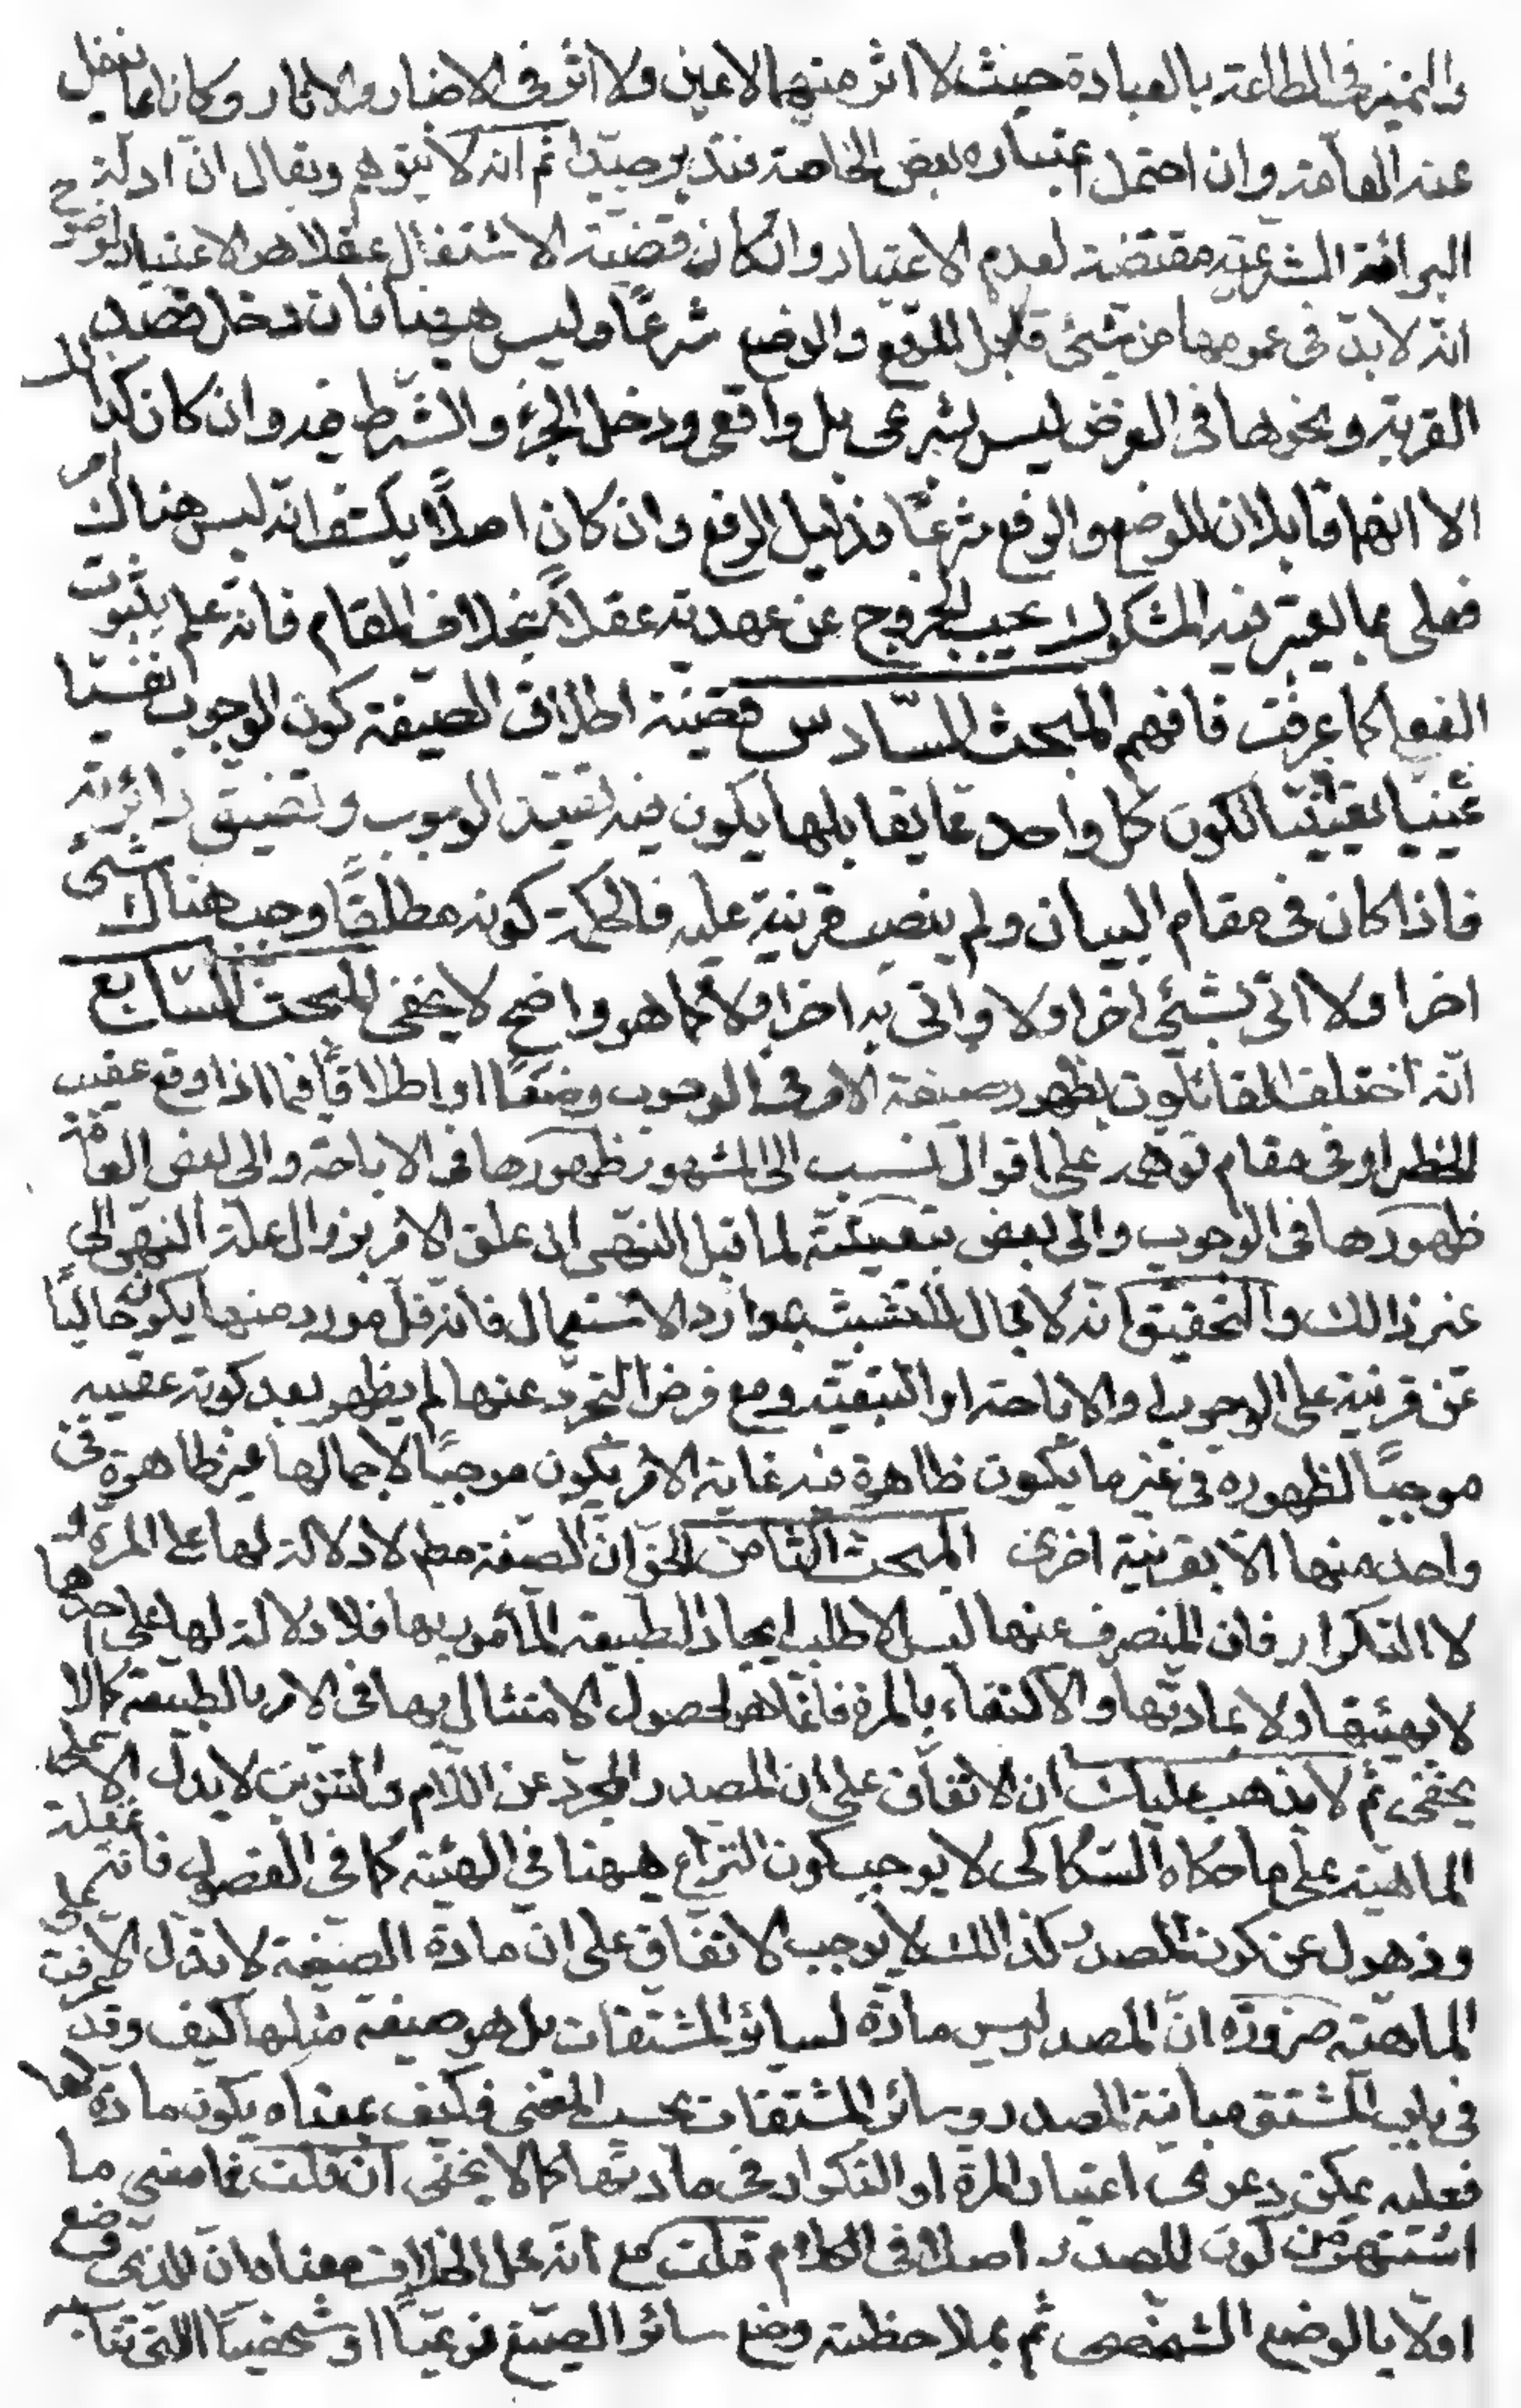 والتميز فى الطاعة بالعبادة حيث لا اثر منهما لا عين ولا اثر فى الاخبار والاثار وكانا مما يغفل
عنه العامة وان احتمل اعتباره بعض الخاصة فتدبر جيدا ثم انه لا يتوهم ويقال ان ادلة
البرائة الشرعية مقتضية لعدم الاعتبار وان كان قضية الاشتغال عقلا هو الاعتبار لوضوح
انه لا بد فى عمومها من شئ قابل للرفع والوضع شرعًا وليس هيهنا فان دخل قصد
القربة ونحوها فى الغرض ليس بشرعى بل واقعى ودخل الجزء والشرط فيه وان كان كذلك
الا انهما قابلان للوضع والرفع شرعًا فدليل الرفع وان كان اصلًا يكشف انه ليس هناك امر
فعلى بما يعتبر فيه المشكوك يجب الخروج عن عهدته عقلا بخلاف المقام فانه علم بثبوت
الفعلى كما عرفت فافهم المبحث السّادس قضية اطلاق الصيغة كون الوجوب نفسيًا
عينيا تعيينيا لكون كل واحد مما يقابلها يكون فيه تقييد الوجوب وتضييق دائرته
فاذا كان فى مقام البيان ولم ينصب قرينة عليه فالحكمة كونه مطلقًا وجب هناك شئ
اخر او لا اتى بشئ اخر او لا واتى به اخر او لا كما هو واضح لا يخفى المبحث السّابع
انّه اختلف القائلون بظهور صيغة الامر فى الوجوب وضعًا او اطلاقًا فيما اذا وقع عقيب
الحظر او فى مقام توهمه على اقوال نسب الى المشهور ظهورها فى الاباحة والى بعض العامة
ظهورها فى الوجوب والى بعض تبعيته لما قبل النهى ان علق الامر بزوال علة النهى الى
غير ذالك والتحقيق انه لا مجال للتشبث بموارد الاستعمال فانه قل مورد منها يكون خاليًا
عن قرينة على الوجوب او الاباحة او التبعيّة ومع فرض التجرّد عنها لم يظهر بعد كونه عقيبه
موجبًا لظهوره فى غير ما يكون ظاهرة فيه غاية الامر يكون موجبًا لاجمالها غير ظاهرة فى
واحد منها الا بقرينة اخرى المبحث الثامن الحق ان الصيغة مطم لا دلالة لها على المرة و
لا التكرار فان المنصرف عنها ليس الا طلب ايجاد الطبيعة المأمور بها فلا دلالة لها على احدهما
لا بهيئتها ولا بمادتها والاكتفاء بالمرة فانما هو لحصول الامتثال بها فى الامر بالطبيعة كما لا
يخفى ثم لا يذهب عليك ان الاتفاق على ان المصدر المجرّد عن اللّام والتنوين لا يدل الا على
الماهية على ما حكاه السّكاكى لا يوجب كون النزاع هيهنا فى الهيئة كما فى الفصول فانه غفلة
وذهول عن كون المصدر كذالك لا يوجب الاتفاق على ان مادة الصيغة لا تدل الا على
الماهيّة ضرورة انّ المصدر ليس مادّة لسائر المشتقات بل هو صيغة مثلها كيف وقد عرفت
فى باب المشتق مباينة المصدر وسائر المشتقات بحسب المعنى فكيف بمعناه يكون مادة لها
فعليه يمكن دعوى اعتبار المرة او التكرار فى مادتها كما لا يخفى ان قلت فما معنى ما
اشتهر من كون المصدر اصلا فى الكلام قلت مع انه محل الخلاف معناه ان الذى وضع
اولا بالوضع الشخصى ثم بملاحظته وضع سائر الصيغ نوعيًا او شخصيًا التى تنا